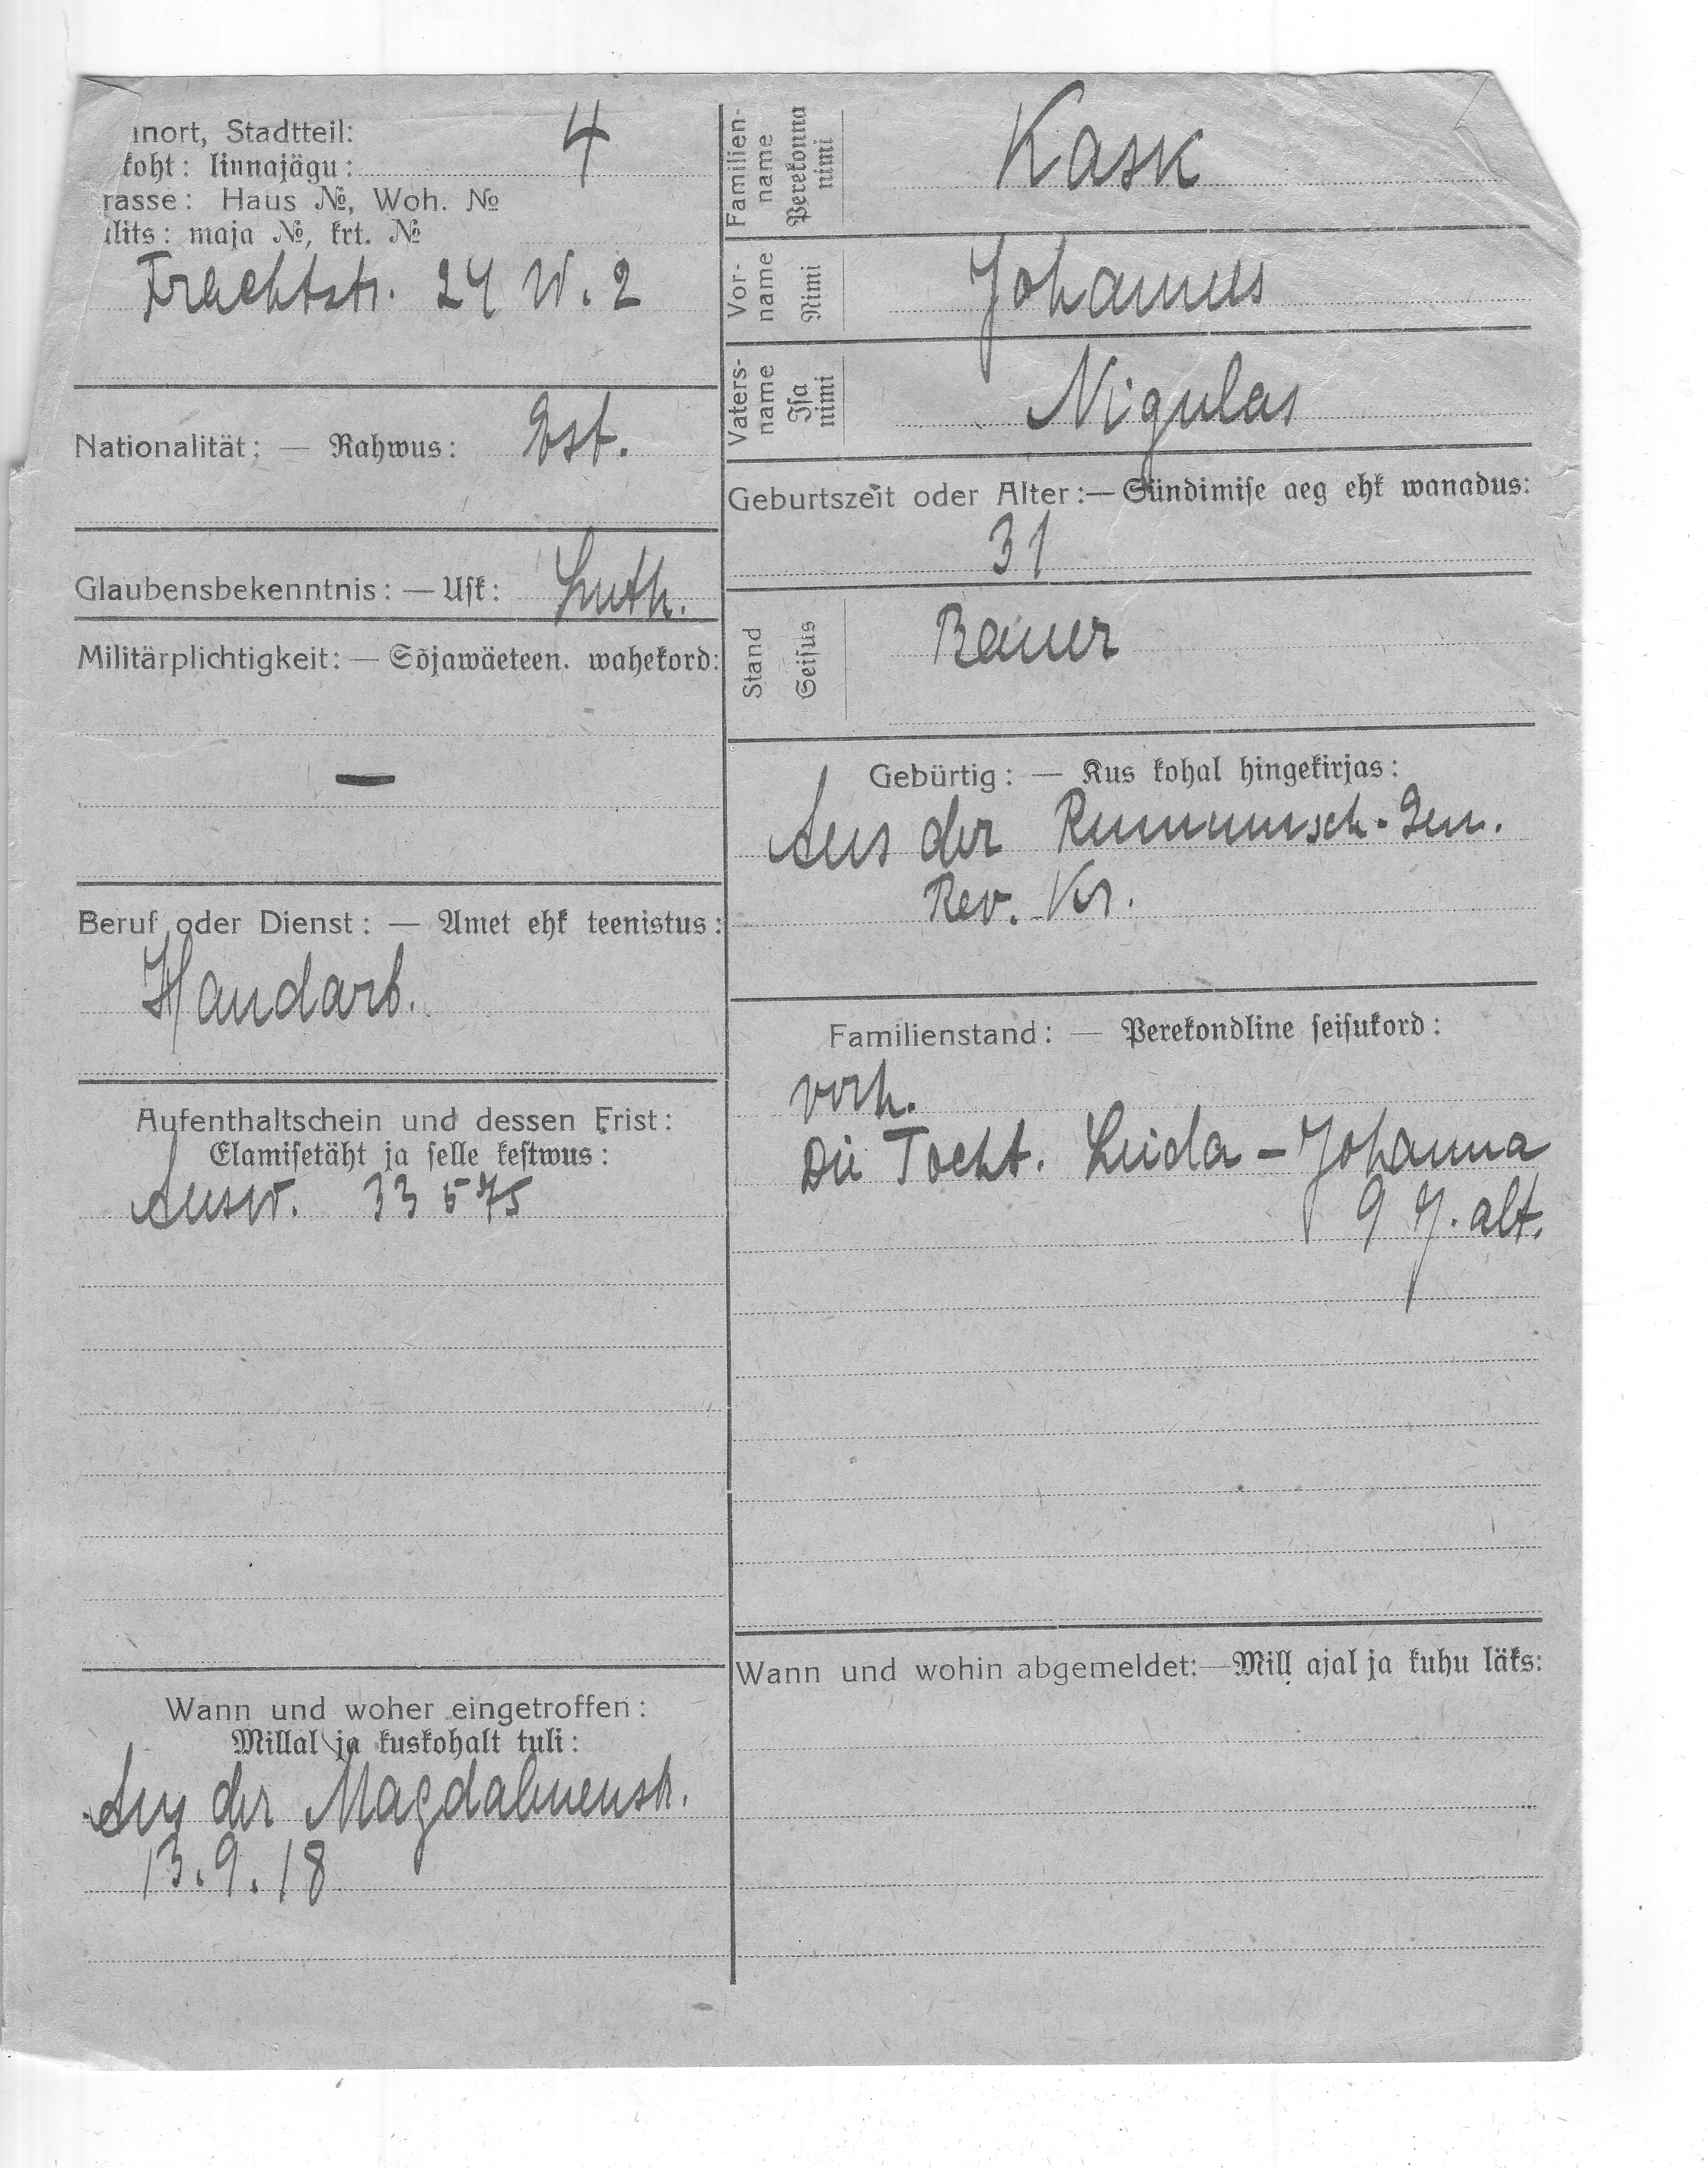 inort, Stadtteil:
koht: linnajägu: 4
rasse: Haus №, Woh. №
ılits: maja №, krt. №
Frachtstr. 24 W. 2
Nationalität: — Rahwus: Est.
Glaubensbekenntnis: — Usk: Luth.
Militärplichtigkeit: — Sõjawäeteen. wahekord:
—
Beruf oder Dienst: — Amet ehk teenistus:
Handarb.
Aufenthaltschein und dessen Frist:
Elamisetäht ja selle kestwus:
Ausw. 33 575
Wann und woher eingetroffen:
Millal ja kuskohalt tuli:
Aus der Magdalenenstr.
13.9.18
Familien-
name
Perekonna
nimi
Kask
Vor-
name
Nimi
Johannes
Vaters-
name
Isa
nimi
Nigulas
Geburtszeit oder Alter:— Sündimise aeg ehk wanadus:
31
Stand
Seisus
Bauer
Gebürtig: — Kus kohal hingekirjas:
Aus der Gem.
Rev. Kr.
Familienstand: — Perekondline seisukord:
verh.
Die Tocht. Leida - Johanna
9 J. alt.
Wann und wohin abgemeldet:—Mill ajal ja kuhu läks: